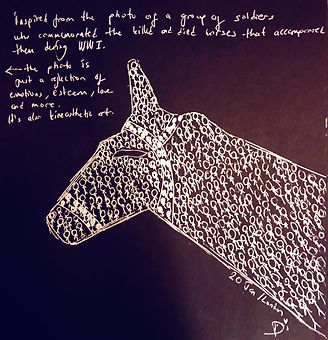 Inspired from the photo of a group of soldiers
who commemorated the killed and died horses that accompanied
them during WWI.
← the photo is
just a reflection of
emotions, esteem, love
and more.
It's also kineasthetic art.
20